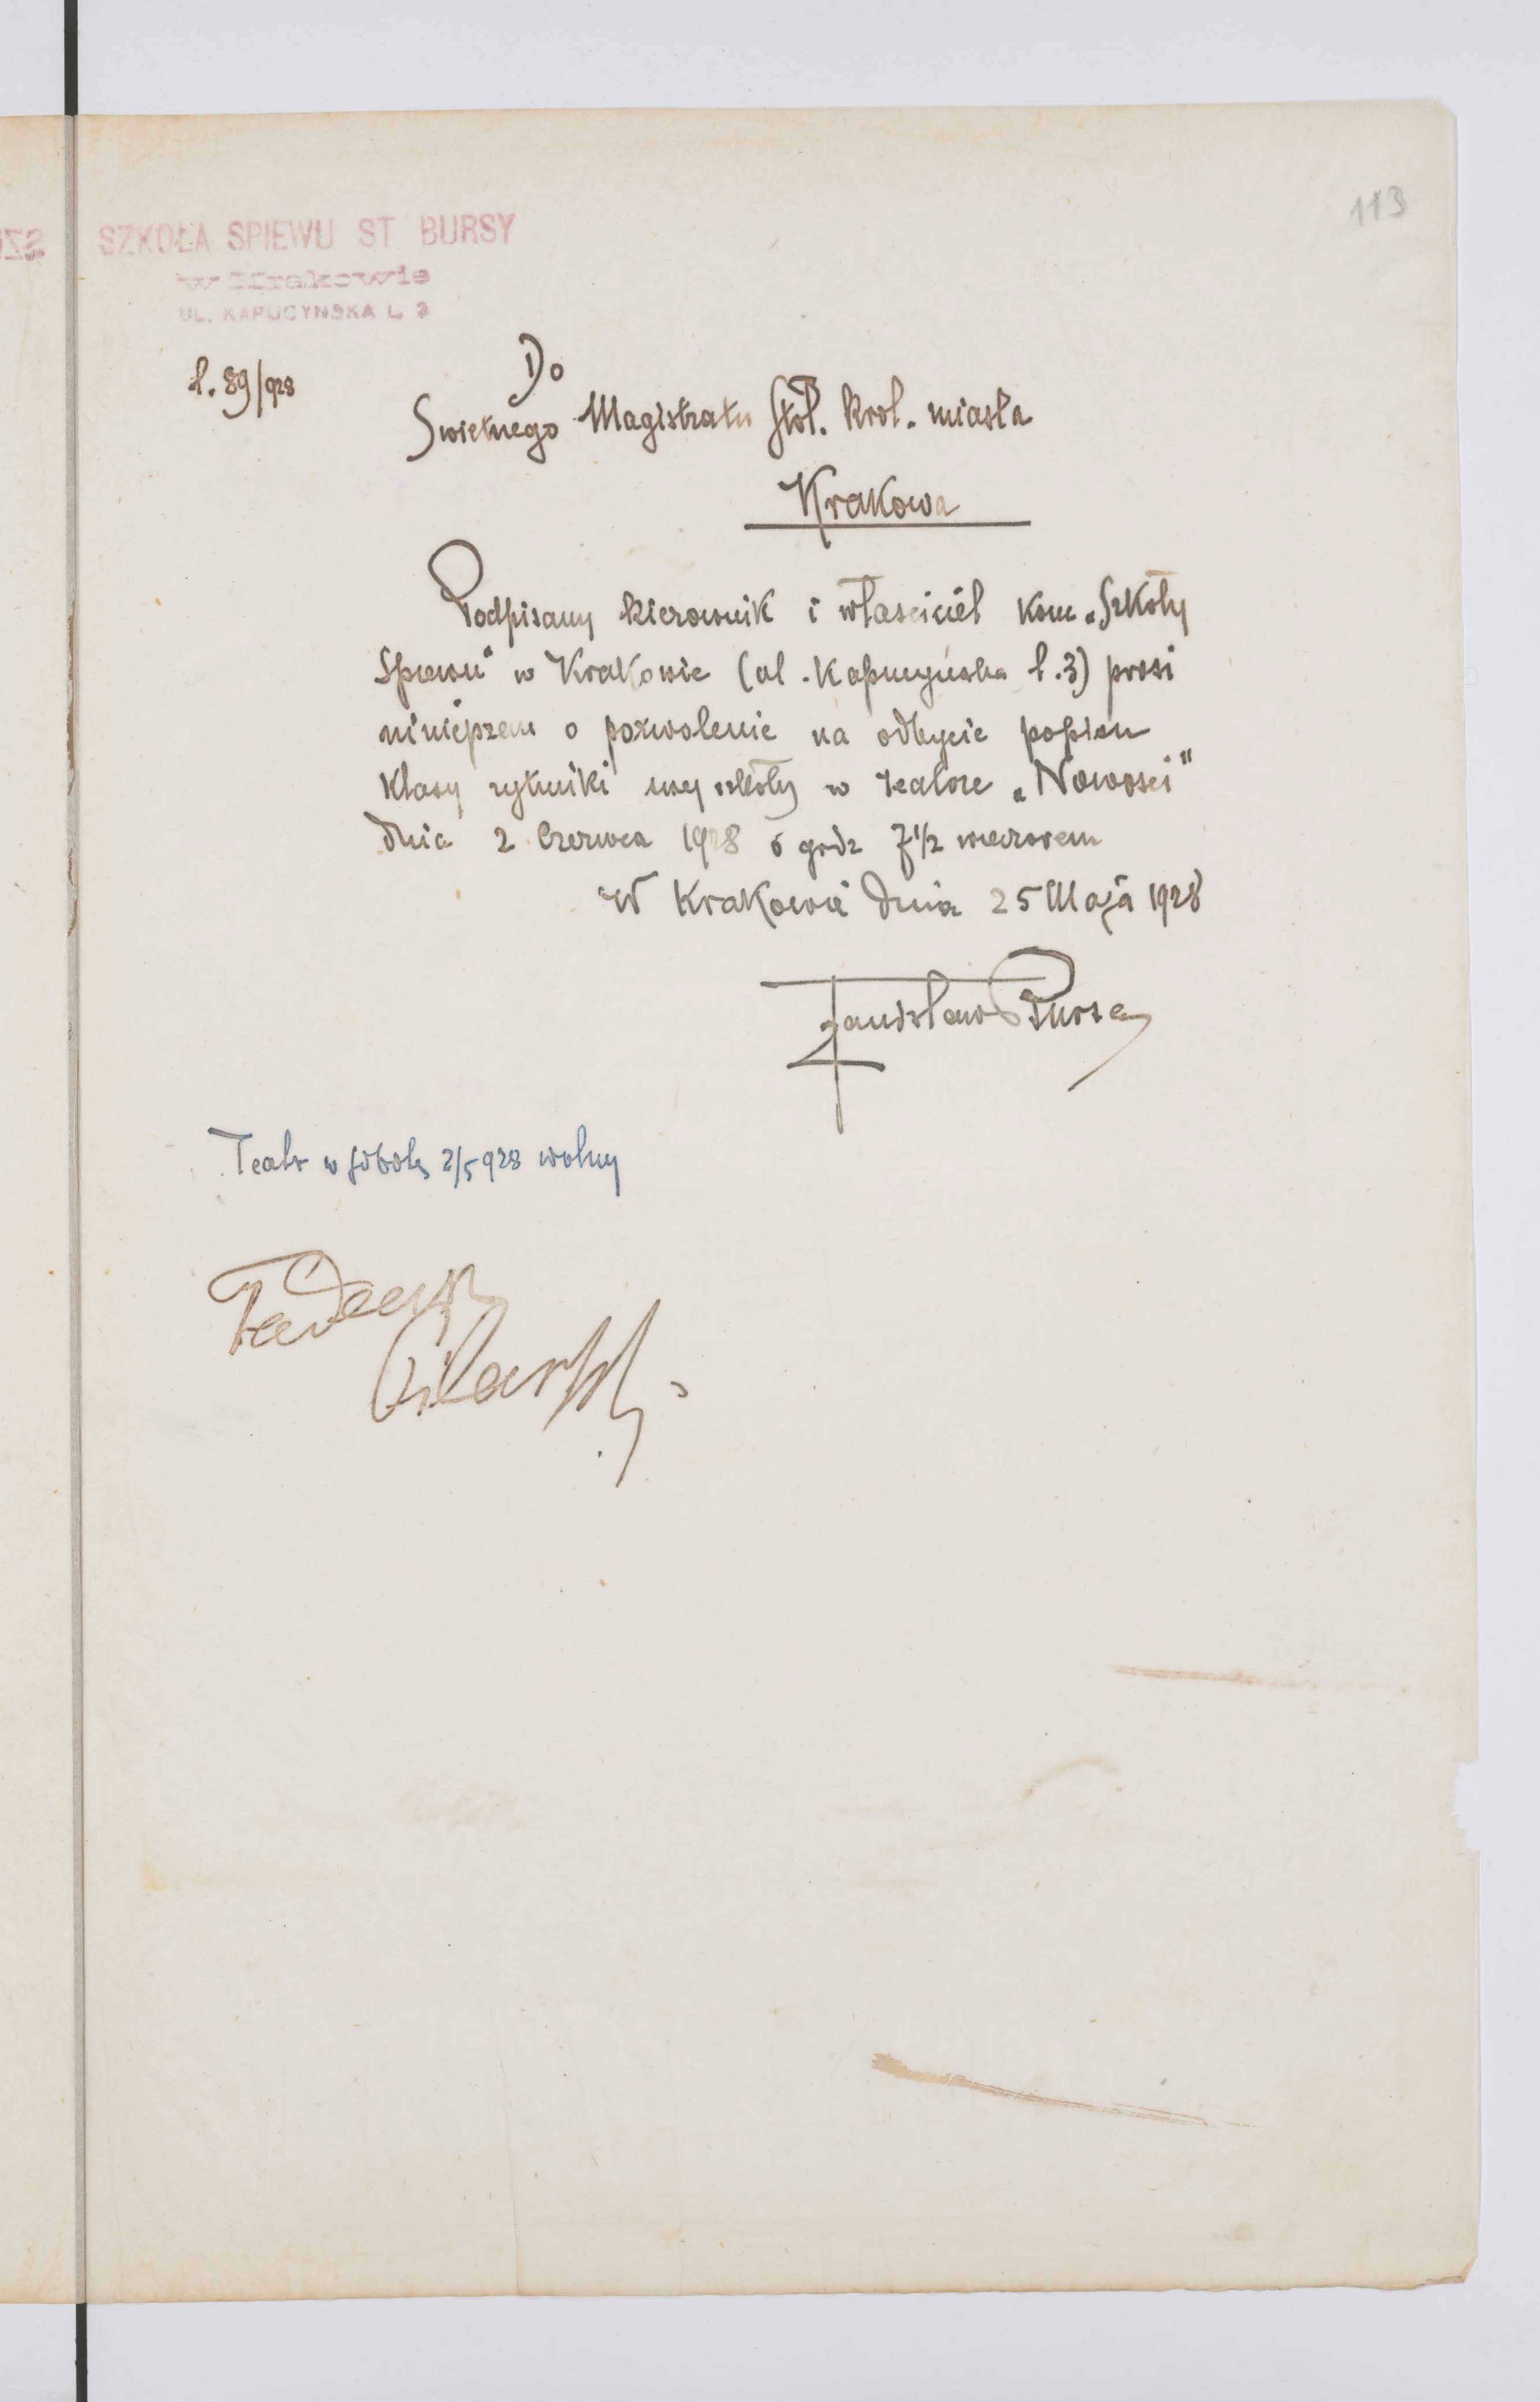 113
SZKOŁA SPIEWU ST BURSY
w Krakowie
UL. KAPUCYNSKA L. 3
l. 89/928
Do
Swietnego Magistratu Stoł. krol. miasta
Krakowa
Podpisany kierownik i własciciel konc. „Szkoły
Spiewu" w Krakowie (ul. Kapucyńska l. 3) prosi
niniejszem o pozwolenie na odbycie popisu
klasy rytmiki swej szkoły w teatrze „Nowosci"
dnia 2 Czerwca 1928 o godz 7 1/2 wieczorem
W Krakowie dnia 25 Maja 1928
Stanisław Bursa
Teatr w sobotę 2/5 928 wolny
Tadeusz
Pilarski